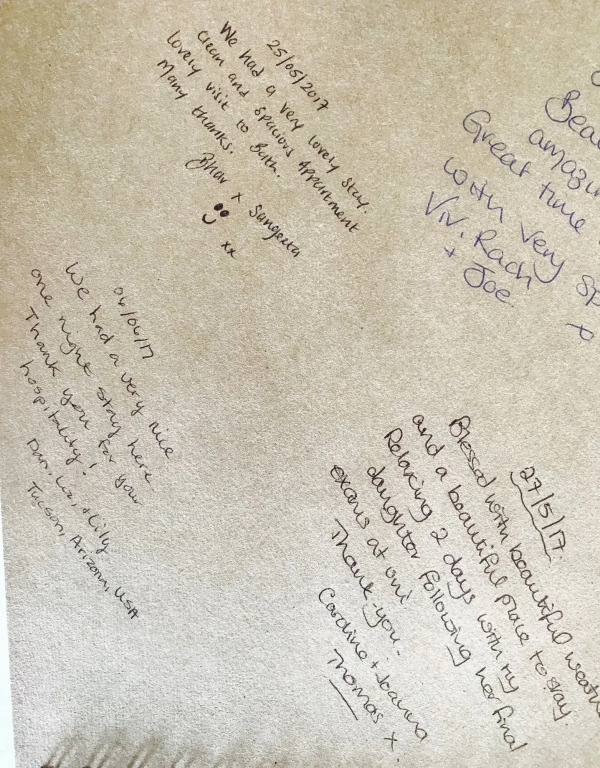 25/05/2017
We had a very lovely stay.
Clean and spacious Appartment
lovely visit to Bath.
Many thanks.
x Sangeeta
xx
Beau
amazin
Great time
with very sp
Viv, Rach
+ Joe.
x
06/06/17
We had a very nice
one night stay here
Thank you for your
hospitality!
Dan, Liz, + Lilly
Tucson, Arizona, USA
27/5/17.
Blessed with beautiful weathe
and a beautiful place to stay.
Relaxing 2 days with my
daughter following her final
exams at uni
Thank-you.
Caroline + Joanna
Thomas x